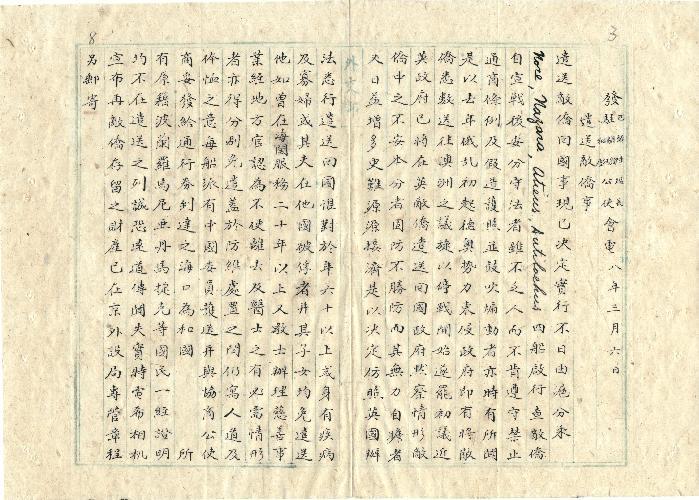 發駐公使會電八年三月六日
遣送敵僑事
遣送敵僑回國事現已決定實行不日由滬分乘
Nore, Nagara, Atreus, Antilochus 四船啟行查敵僑
自宣戰後安分守法者雖不乏人而不肯遵守禁止
通商條例及假造護照並鼓吹煽動者亦時有所聞
是以去年俄亂初起德奧勢力東侵政府即有將敵
僑悉數送往澳洲之議旋以停戰開始遂罷初議近
英政府已將在英敵僑遣送回國政府熟察情形敵
僑中之不安本分者固防不勝防而其無力自瞻者
又日益增多更難源源接濟是以決定仿照英國辦
法悉行遣送回國惟對於年六十以上或身有疾病
及寡婦或其夫在他國被俘者并其子女均免遣送
他如曾在海關服務二十年以上又教士辦理慈善事
業經地方官認為不便離去及醫士之有必需情形
者亦得分別免遣蓋於防維處置之間仍寓人道及
体恤之意每船派有中國委員護送并與協商公使
商妥發給通行券到達之海口為和國 所
有原籍波蘭羅馬尼亞丹馬捷克等國民一經證明
均不在遣送之列誠恐遠道傳聞失實特電希相机
宣布再敵僑存留之財產已在京外設局專管章程
另郵寄
外交
3
8